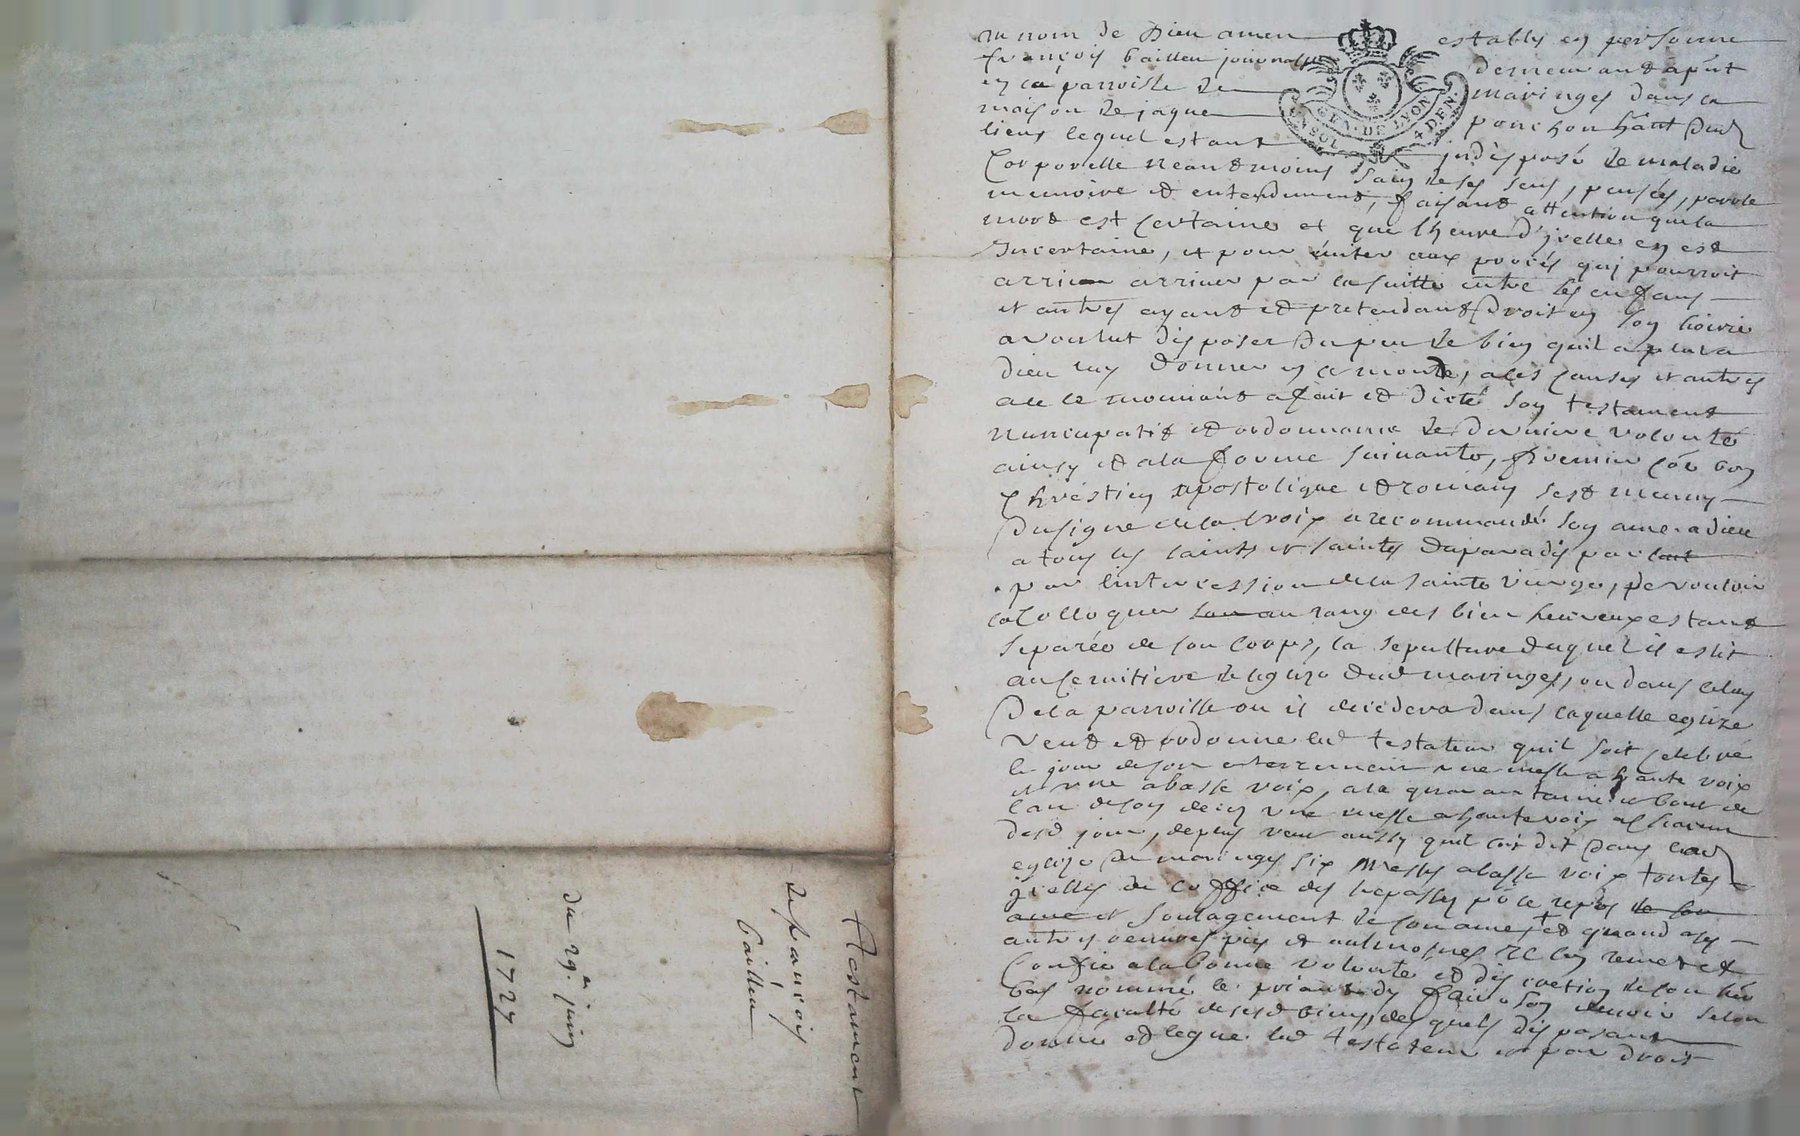 Testament
de francois
bailleu
du 29e. juin
1727
au nom de Dieu amen establi en personne
françois bailleu journallier demeurant apñt
en la parroisse de maringes dans la
maison de jaque ponchon hãnt dud
lieux lequel estant indisposé de maladie
Corporelle neantmoins sain de ses sens, pensées, parole
memoire et entendement, faisant attention que la
mort est certaine et que lheure d'jcelle en est
Jncertaine, et pour éuiter aux procés quj pourroit
arriuer par la suitte entre ses enfans
et autres ayant et pretendant Droit en son hoirie
a voulut disposer du peu de bien quil a plut a
dieu luy donner en ce monde, a ces causes et autres
a ce le mouuant a fait et dicté son testament
nuncupatif et ordonnance de derniere volonté
ainsy et a la forme suiuante, premier cõe bon
Chréstien apostolique et romain sest muny
du signe de la Croix a recommandé son ame a dieu
a tous les saints et saintes du paradis par
par lintercession de la sainte vierge, de vouloir
la Colloquer au rang des bien heureux estant
separée de son Corps, la sepulture duquel il eslit
au Cemitiere de legize dud maringes, ou dans celuy
De la parroisse ou il decedera dans laquelle eglize
veut et ordonne led testateur quil soit celebré
le jour de son enterrement une messe a haute voix
et une a basse voix, a la quarantaine et bout de
lan de son deces une messe a haute voix a chacun
desd jour, de plus veut aussy quil soit dit dans lad
eglize de maringes six messes a basse voix toutes
jcelles de loffice des trepassés põ le repos
et soulagement de son ame et quand a ses
autres oeuures pies et aulmosnes Il sen remet et
Confie a la bonne volonté et discretion de son hér
bas nommé le priant dy faire son deuoir selon
la faculté de sesd biens, desquels disposant
donne et legue led testateur et par droit